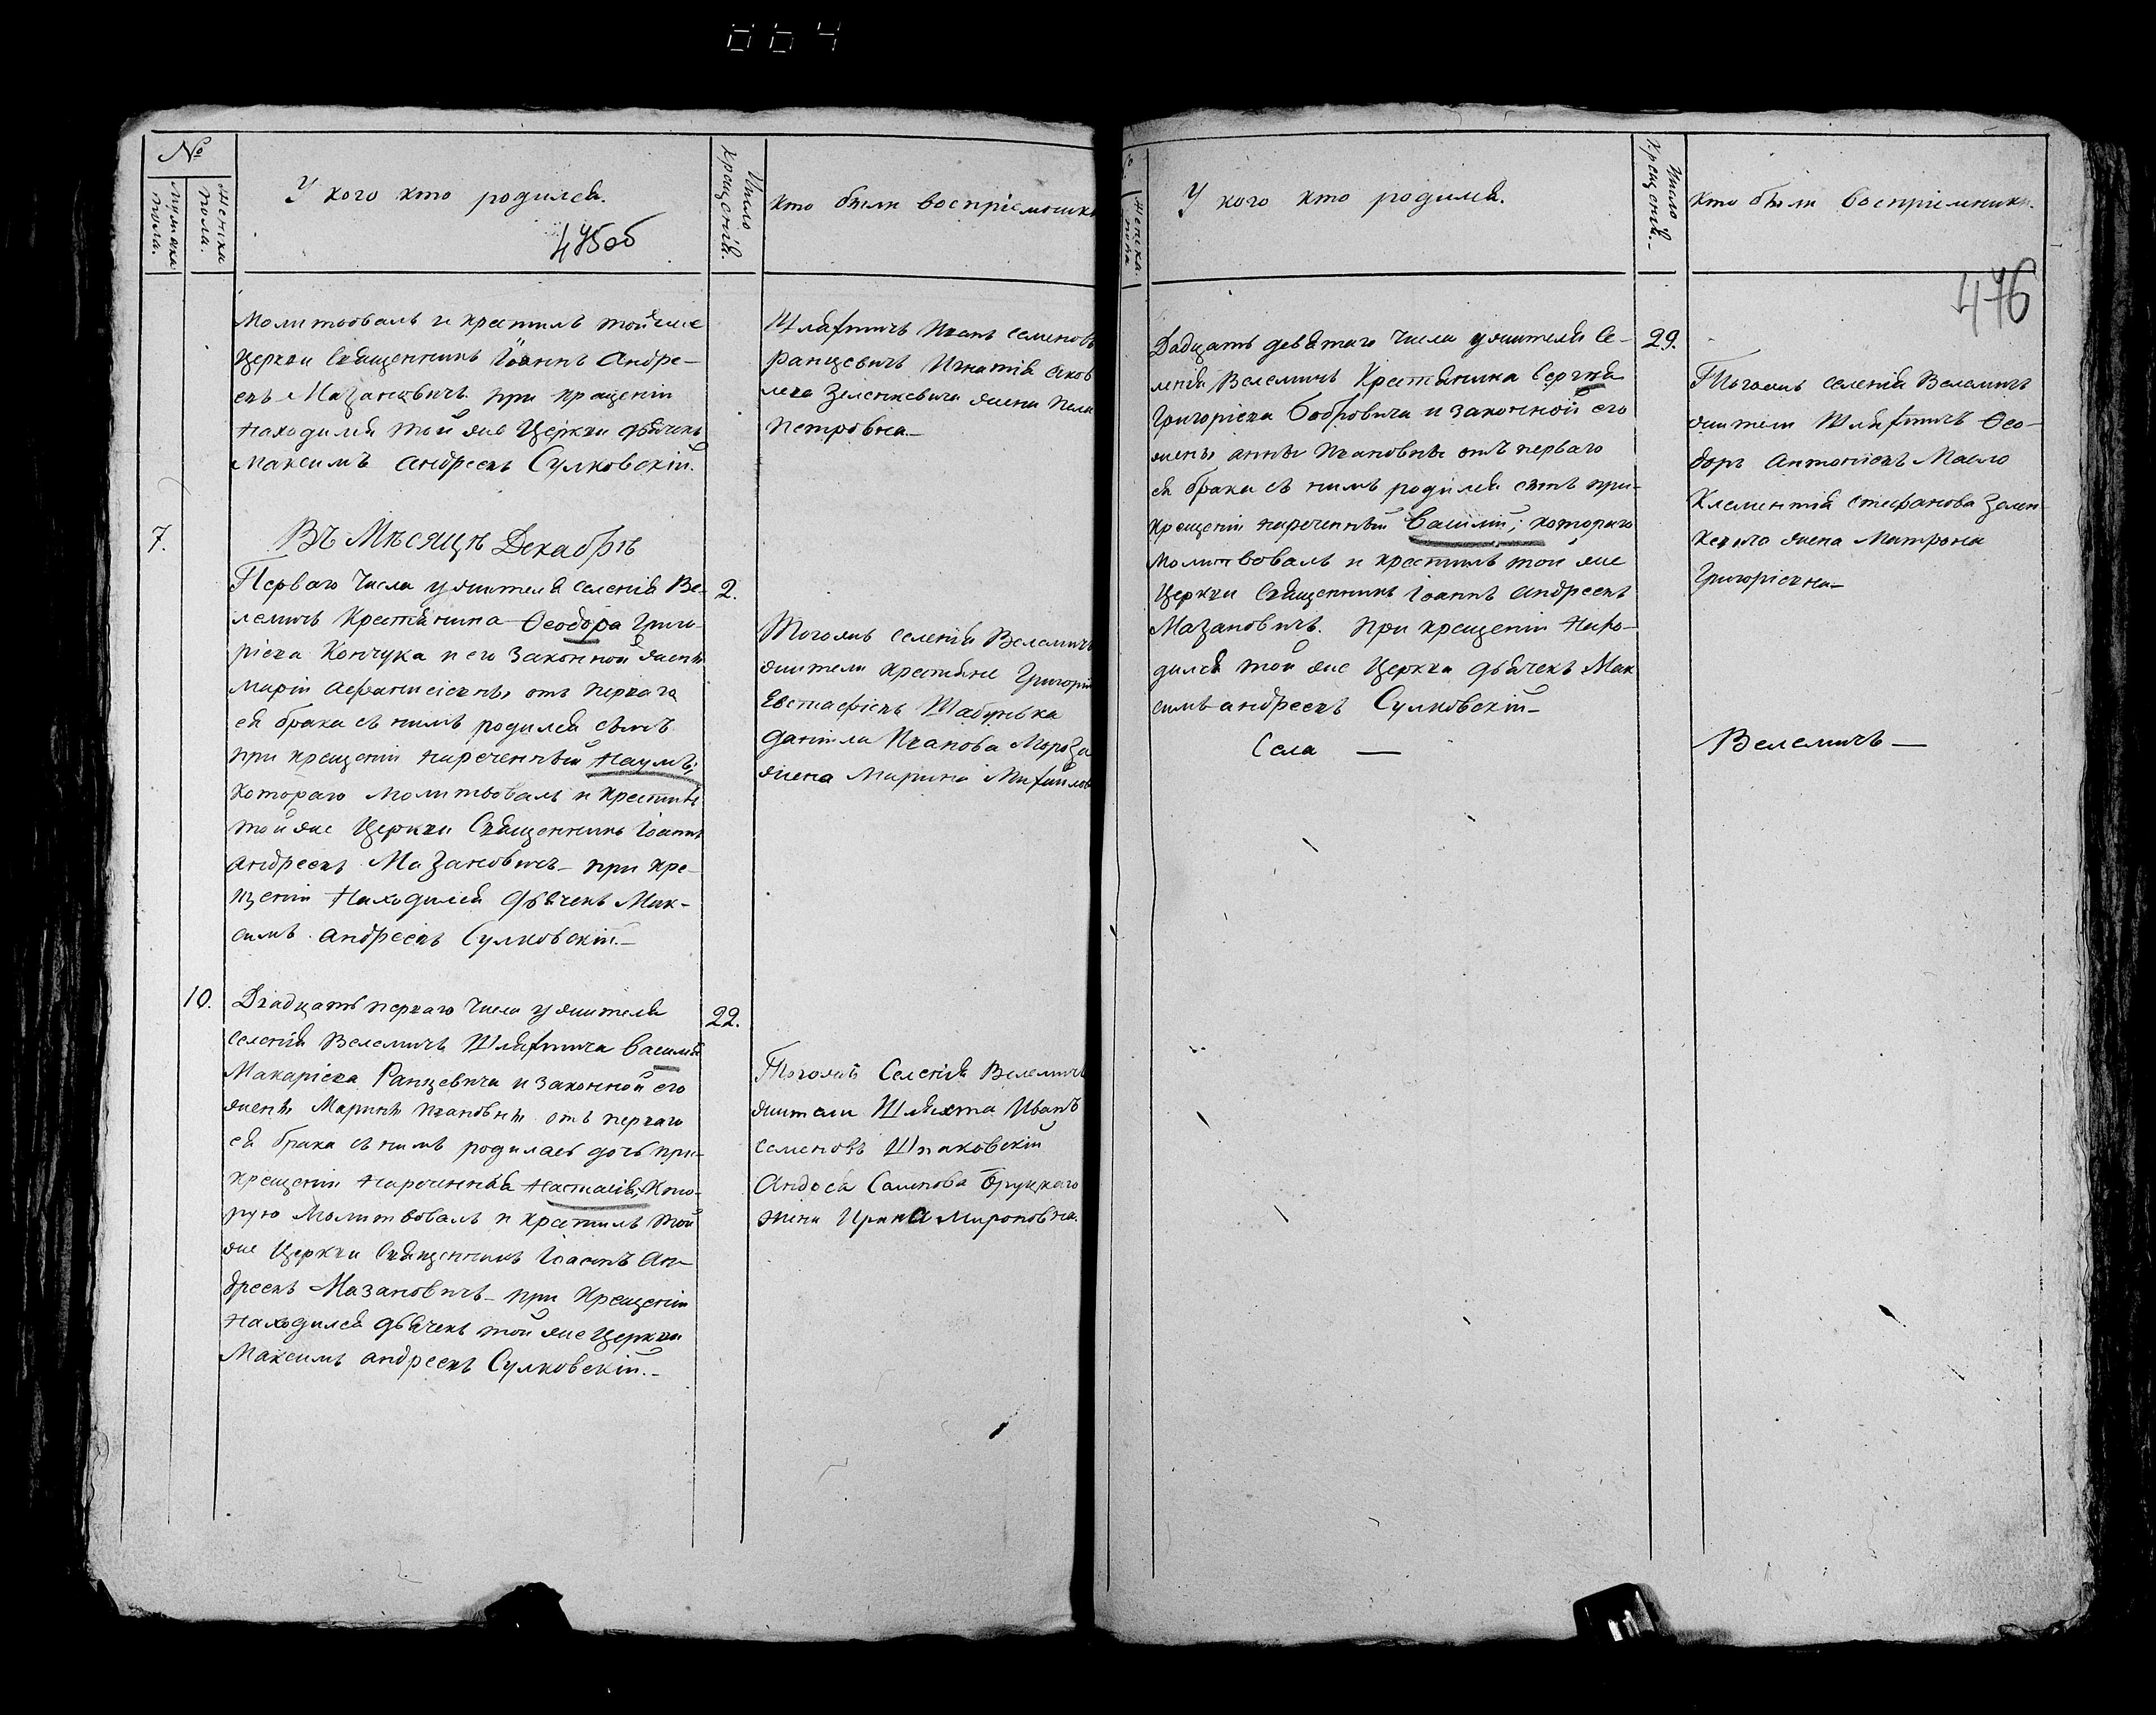 004
№
Мужеска пола.
Женска пола.
У кого кто родился.
475об
Число крещенія.
Кто были воспріемники
Молитвовалъ и крестилъ той же
Церкви Священникъ Іоаннъ Андре-
евъ Мазановичъ при крещеніи
находился той же Церкви дьячекъ
Максимъ Андреевъ Сулковскій.
Шляхтичъ Иванъ Семеновъ
Ранцевичъ Игнатія Яков
лева Зеленкевича жена
Петровна
7.
Въ Мѣсяцѣ Декабрѣ
Перваго числа у жителя селенія Ве-
лемичъ Крестянина Ѳеодора Григо-
ріева Кончука и его законной жены
Маріи Афанасіевны отъ перваго
ея брака съ нимъ родился сынъ
при крещеніи нареченный Наумъ;
котораго молитвовалъ и крестилъ
той же Церкви Священникъ Іоаннъ
Андреевъ Мазановичъ при кре-
щеніи находился дьячекъ Мак-
симъ Андреевъ Сулковскій.
2.
Тогожъ селенія Велемичъ
жители крестяне Григорій
Евстафіевъ Шабунька
Даніила Иванова Мороза
жена Марина Михайлов
10.
Двадцать перваго числа у жителя
селенія Велемичъ Шляхтича Василія
Макаріева Ранцевича и законной его
жены Марины Ивановны отъ перваго
ея брака съ нимъ родилась дочь при
крещеніи нареченная Настасія, кото-
рую молитвовалъ и крестилъ той
же Церкви Священникъ Іоаннъ Ан-
дреевъ Мазановичъ при крещеніи
находился дьячекъ той же Церкви
Максимъ Андреевъ Сулковскій.
22.
Тогожъ Селенія Велемичъ
жители Шляхта Иванъ
Семеновъ Шпаковскій
Семенова Бруцкаго
жена Ирина Мироновна.
Женска пола
У кого кто родился.
Число Крещенія.
Кто были воспріемники.
476
Двадцать девятаго числа у жителя Се-
ленія Велемичъ Крестянина Сергѣя
Григоріева Бобровича и законной его
жены Анны Ивановны отъ перваго
ея брака съ нимъ родился сынъ при
крещеніи нареченный Василій; котораго
молитвовалъ и крестилъ той же
Церкви Священникъ Іоаннъ Андреевъ
Мазановичъ. При крещеніи нахо-
дился той же Церкви дьячекъ Мак
симъ Андреевъ Сулковскій
29.
Тогожъ селенія Велемичъ
жители Шляхтичъ Ѳео-
доръ Антоніевъ Масло
Клементія Стефанова Зелен
жена Матрона
Григоріевна
Села
Велемичъ